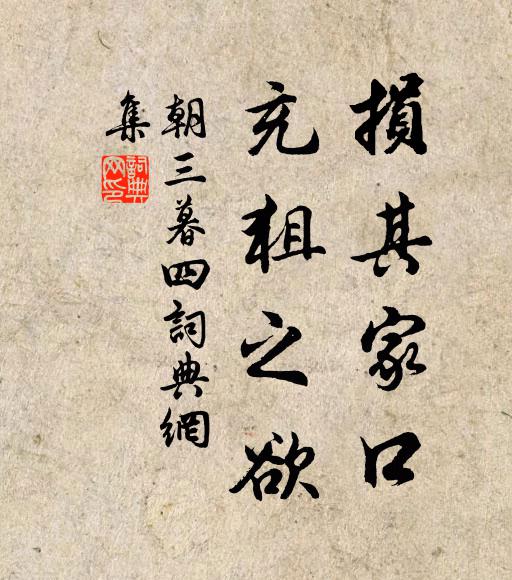 損其家口
充狙之欲
朝三暮四詞典網
集
詞典網印